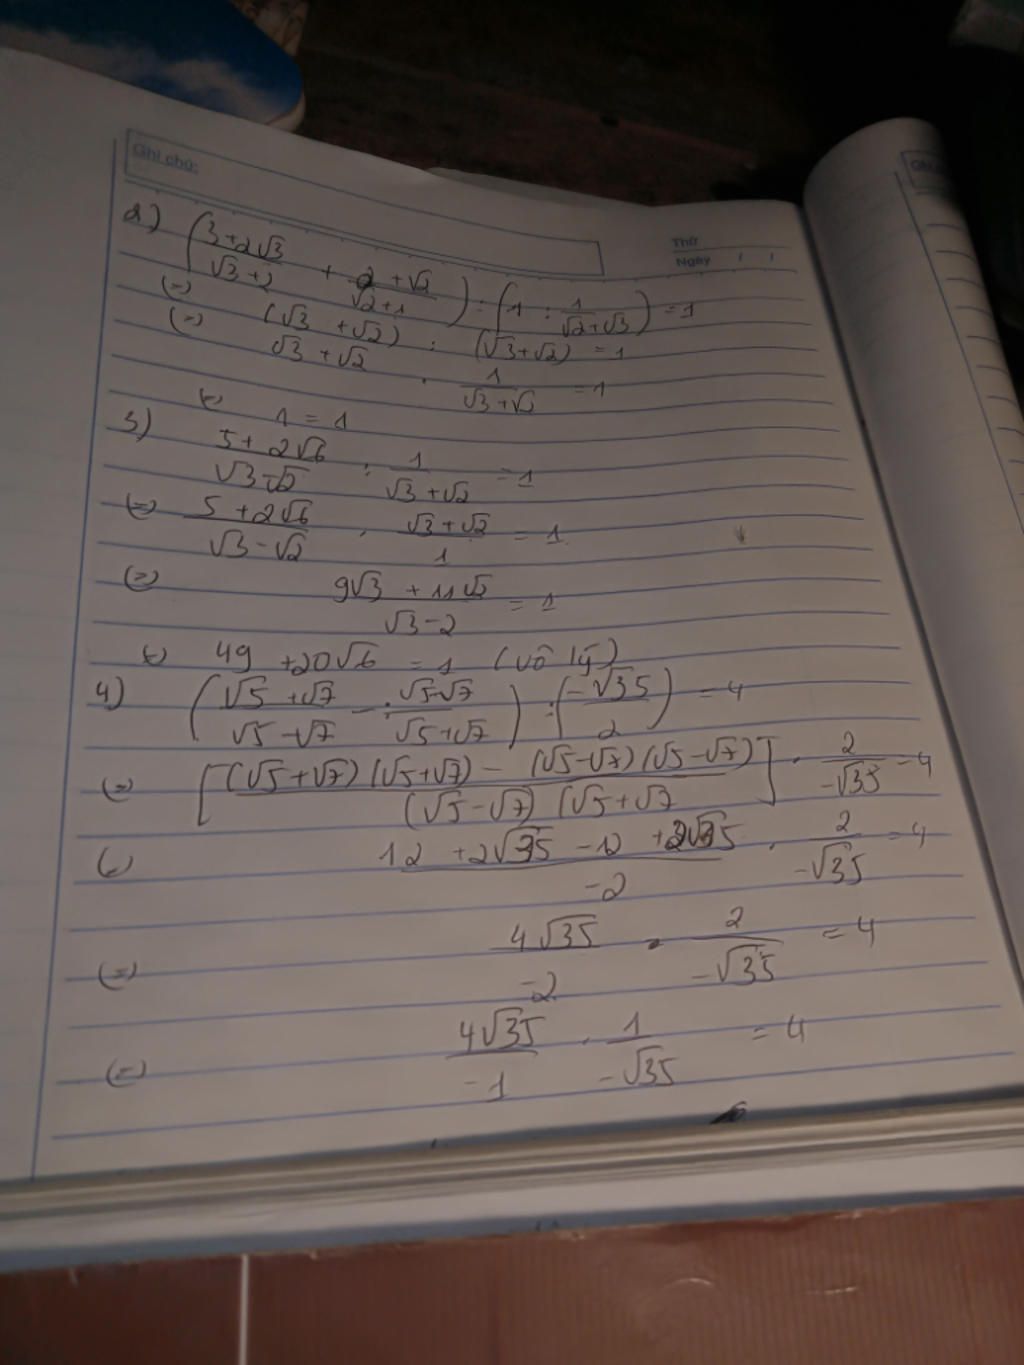 Ghi chú:
Thứ
Ngày / /
2) ((3+2√3)/(√3+2) + (2+√2)/(√2+1)) : (1 : 1/(√2+√3)) = 1
(=) (√3 + √2) : (√3+√2) = 1
(=) √3 + √2 . 1/(√3+√2) = 1
(=) 1 = 1
3) (5+2√6)/(√3-√2) : 1/(√3+√2) = 1
(=) (5+2√6)/(√3-√2) . (√3+√2)/1 = 1
(=) (9√3 + 11√2)/(√3-2) = 1
(=) 49 + 20√6 = 1 (vô lý)
4) ((√5+√7)/(√5-√7) - (√5-√7)/(√5+√7)) : (-√35/2) = 4
(=) [((√5+√7)(√5+√7) - (√5-√7)(√5-√7))/((√5-√7)(√5+√7] . 2/(-√35) = 4
(=) (12 + 2√35 - 12 + 2√35)/(-2) . 2/(-√35) = 4
(=) 4√35/(-2) . 2/(-√35) = 4
(=) 4√35/(-1) . 1/(-√35) = 4